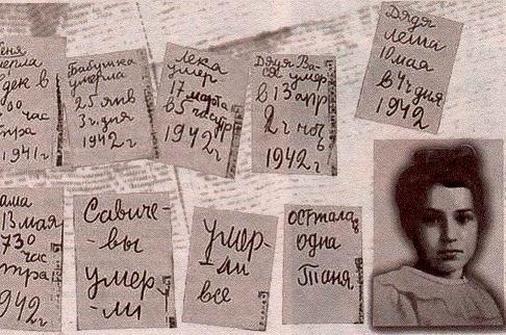 еня
мерла
дек в
00 час
тра
1941 г
Бабушка
умерла
25 янв
3 ч. дня
1942 г
Лека
умер
17 марта
в 5 час утр
1942 г
Дядя Ва-
ся умер
в 13 апр
2 ч ноч
1942 г
Дядя
Леша
10 мая
в 4 ч дня
1942
ама
13 мая
730
час
тра
942 г
Савиче-
-вы
умер-
-ли
Умер-
-ли
все
осталась
одна
Таня